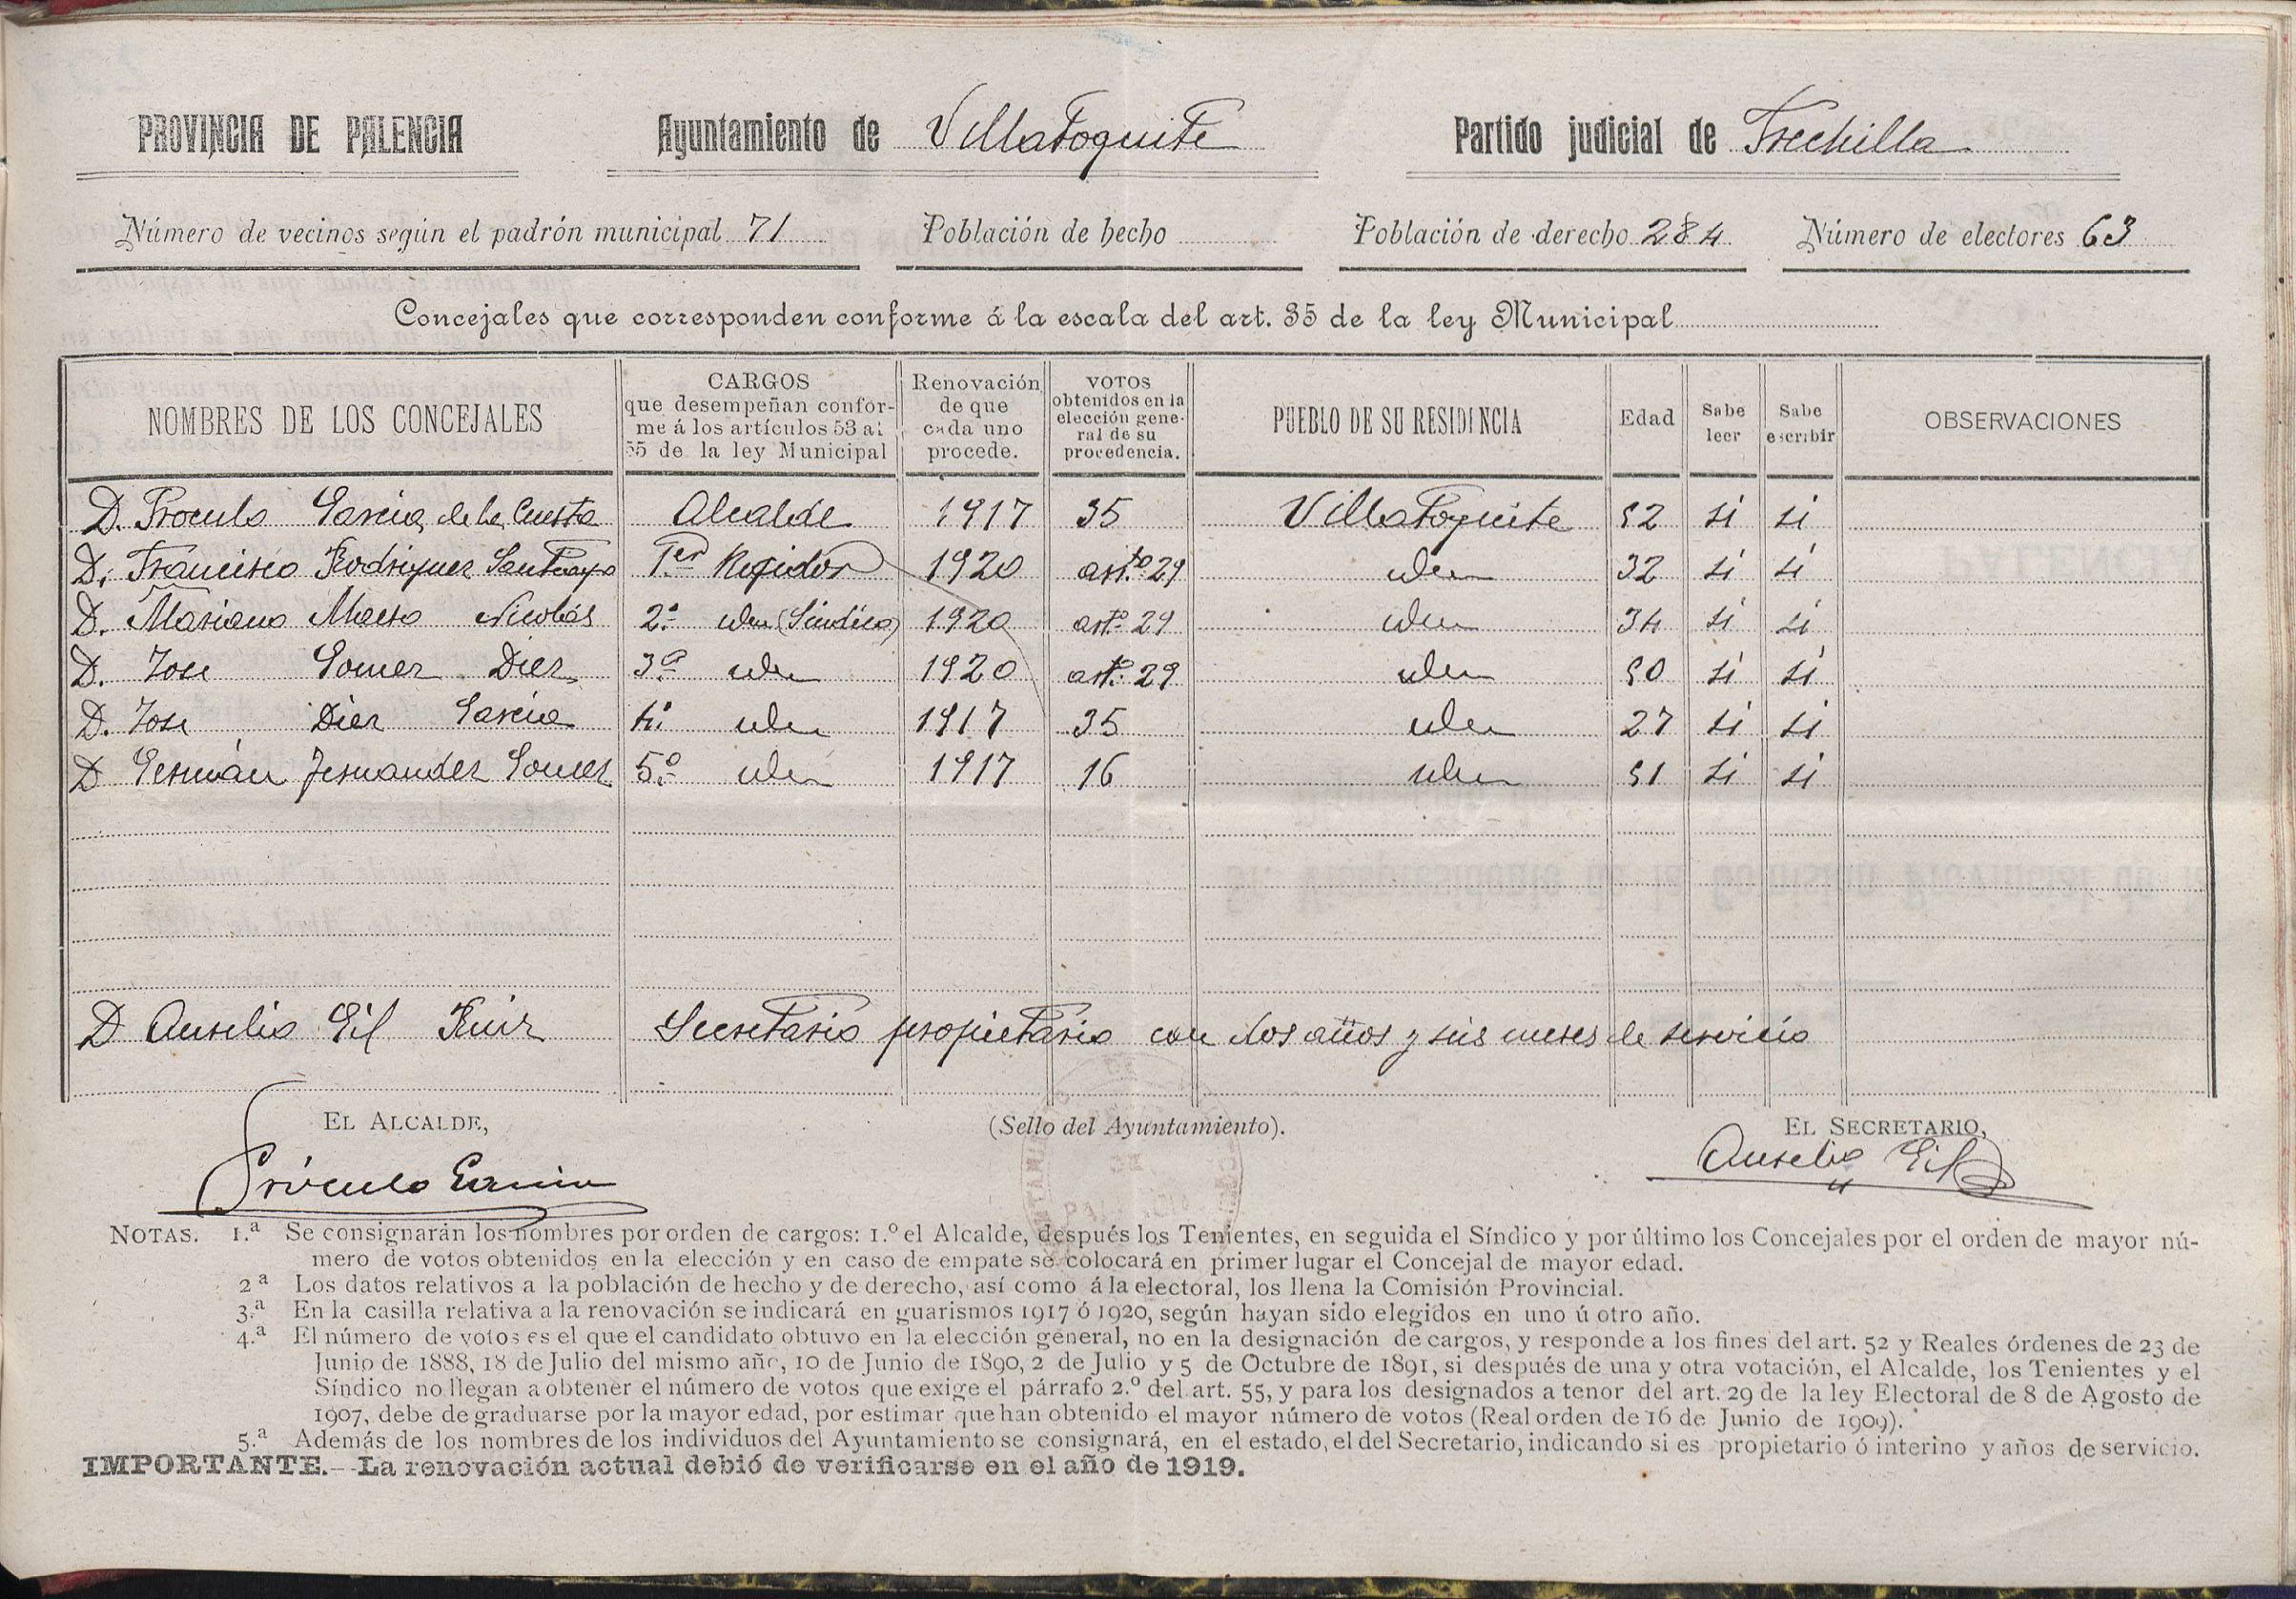 PROVINCIA DE PALENCIA Ayuntamiento de Villatoquite Partido judicial de Frechilla
Número de vecinos según el padrón municipal 71 Población de hecho Población de derecho 284 Número de electores 63
Concejales que corresponden conforme á la escala del art. 35 de la ley Municipal
NOMBRES DE LOS CONCEJALES
CARGOS
que desempeñan confor-
me á los artículos 53 al
55 de la ley Municipal
Renovación
de que
cada uno
procede.
VOTOS
obtenidos en la
elección gene-
ral de su
procedencia.
PUEBLO DE SU RESIDENCIA
Edad
Sabe
leer
Sabe
escribir
OBSERVACIONES
D. Proculo Garcia de la Cuesta Alcalde 1917 35 Villatoquite 52 si si
D. Francisco Rodriguez Santoyo 1er Regidor 1920 arto 29 idem 32 si si
D. Mariano Maeso Nicolás 2º idem (Sindico) 1920 arto 29 idem 34 si si
D. Jose Gomez Diez 3º idem 1920 arto 29 idem 50 si si
D. Jose Diez Garcia 4º idem 1917 35 idem 27 si si
D Germán Fernandez Gomez 5º idem 1917 16 idem 51 si si
D Aurelio Gil Ruiz Secretario propietario con dos años y seis meses de servicio
EL ALCALDE, (Sello del Ayuntamiento). EL SECRETARIO,
Próculo Garcia Aurelio Gil
NOTAS. 1.ª Se consignarán los nombres por orden de cargos: 1.º el Alcalde, después los Tenientes, en seguida el Síndico y por último los Concejales por el orden de mayor nú-
mero de votos obtenidos en la elección y en caso de empate se colocará en primer lugar el Concejal de mayor edad.
2ª Los datos relativos a la población de hecho y de derecho, así como á la electoral, los llena la Comisión Provincial.
3.ª En la casilla relativa a la renovación se indicará en guarismos 1917 ó 1920, según hayan sido elegidos en uno ú otro año.
4.ª El número de votos es el que el candidato obtuvo en la elección general, no en la designación de cargos, y responde a los fines del art. 52 y Reales órdenes de 23 de
Junio de 1888, 18 de Julio del mismo año, 10 de Junio de 1890, 2 de Julio y 5 de Octubre de 1891, si después de una y otra votación, el Alcalde, los Tenientes y el
Síndico no llegan a obtener el número de votos que exige el párrafo 2.º del art. 55, y para los designados a tenor del art. 29 de la ley Electoral de 8 de Agosto de
1907, debe de graduarse por la mayor edad, por estimar que han obtenido el mayor número de votos (Real orden de 16 de Junio de 1909).
5.ª Además de los nombres de los individuos del Ayuntamiento se consignará, en el estado, el del Secretario, indicando si es propietario ó interino y años de servicio.
IMPORTANTE.—La renovación actual debió de verificarse en el año de 1919.